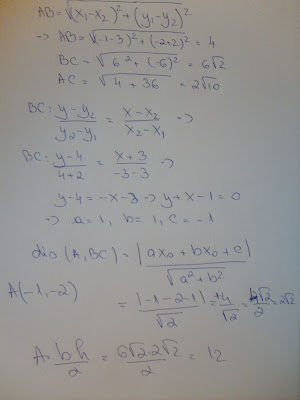 AB = √(x₁-x₂)² + (y₁-y₂)²
→ AB = √(-1-3)² + (-2+2)² = 4
BC = √6² + (-6)² = 6√2
AC = √4 + 36 = 2√10
BC: (y-y₂)/(y₂-y₁) = (x-x₂)/(x₂-x₁) →
BC: (y-4)/(4+2) = (x+3)/(-3-3) →
y-4 = -x-3 → y+x-1=0
→ a=1, b=1, c=-1
dio (A, BC) = |ax₀ + bx₀ + c| / √a² + b²
A(-1,-2)
= |-1-2-1| / √2 = 4/√2 = 4√2/2 = 2√2
A = bh/2 = 6√2·2√2/2 = 12